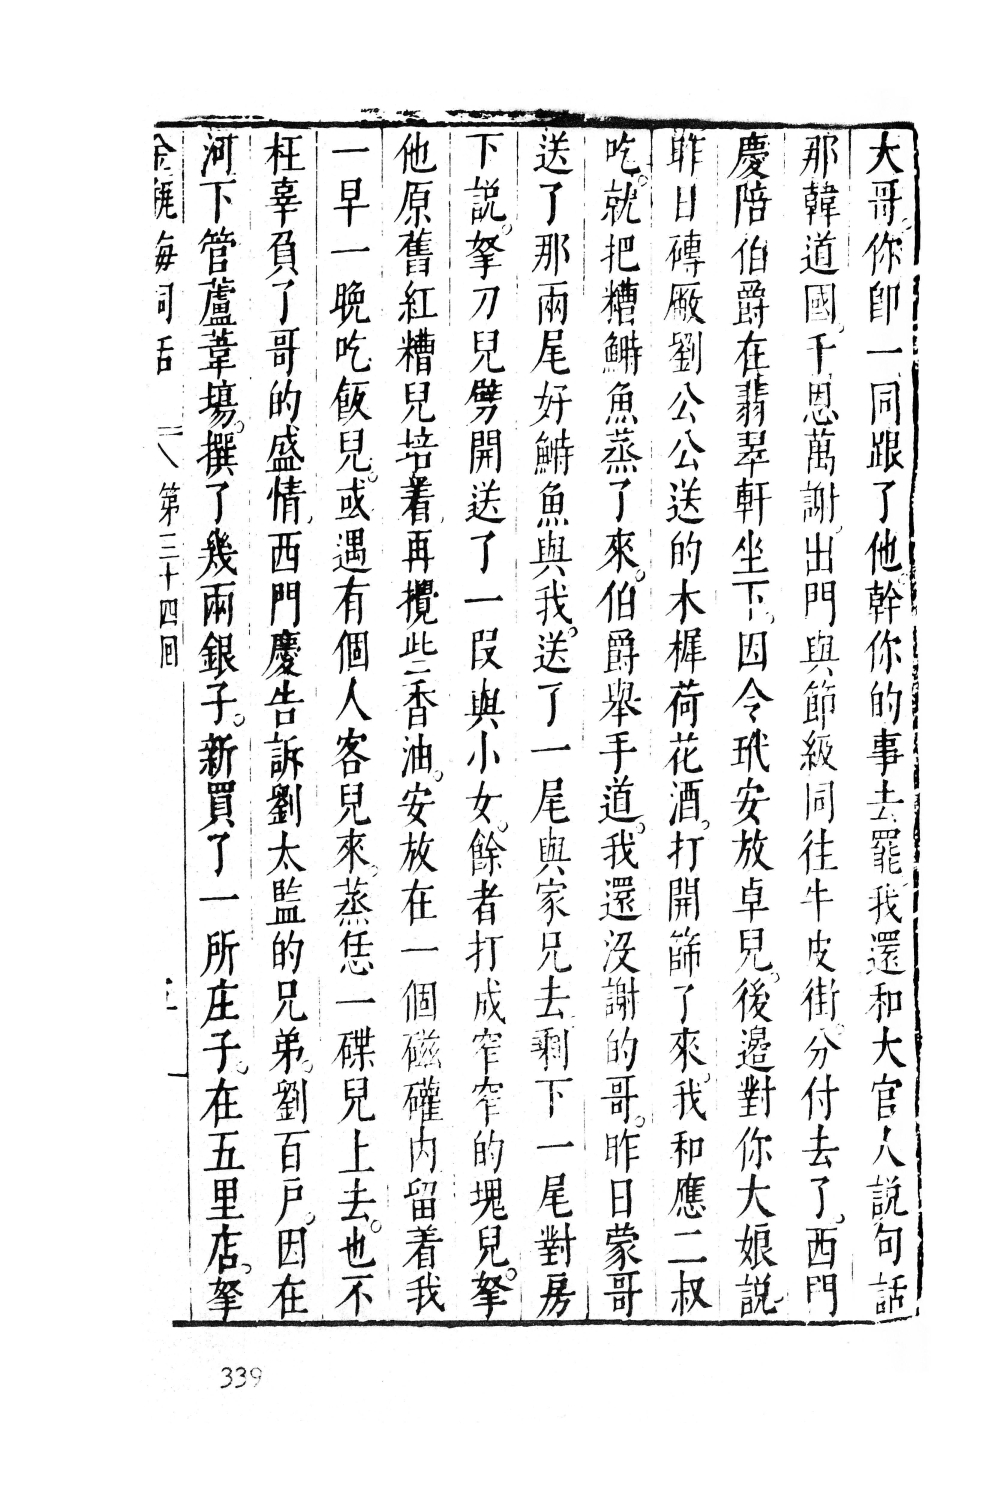 大哥。你卽一同跟了他。幹你的事去罷。我還和大官人說句話
那韓道國。千恩萬謝。出門與節級同往牛皮街。分付去了。西門
慶陪伯爵在翡翠軒坐下。因令玳安放卓兒。後邊對你大娘說。
昨日磚廠劉公公送的木樨荷花酒。打開篩了來。我和應二叔
吃。就把糟鰣魚蒸了來。伯爵舉手道。我還沒謝的哥。昨日蒙哥
送了那兩尾好鰣魚與我。送了一尾與家兄去。剩下一尾對房
下說。拏刀兒劈開送了一叚與小女。餘者打成窄窄的塊兒。拏
他原舊紅糟兒培着。再攪些香油。安放在一個磁礶內。留着我
一早一晚吃飯兒。或遇有個人客兒來。蒸恁一碟兒上去。也不
枉辜負了哥的盛情。西門慶告訴劉太監的兄弟。劉百戶。因在
河下管蘆葦塲。撰了幾兩銀子。新買了一所庄子。在五里店。拏
金瓶梅詞話 第三十四回
339